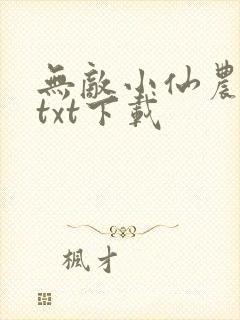 無敵小仙農
txt下載
楓才